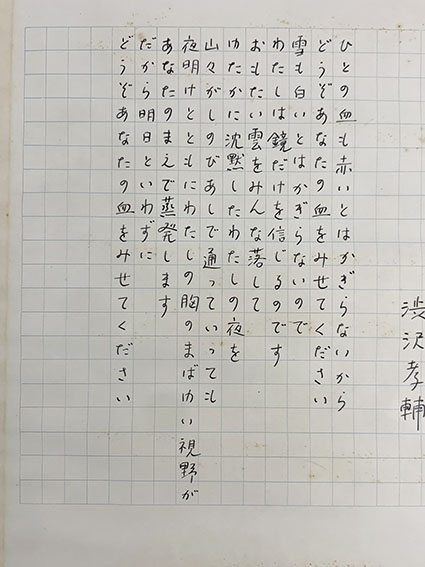 渋沢孝輔
ひとの血も赤いとはかぎらないから
どうぞあなたの血をみせてください
雪も白いとはかぎらないので
わたしは鏡だけを信じるのです
おもたい雲をみんな落して
ゆたかに沈黙したわたしの夜を
山々がしのびあしで通っていっても
夜明けとともにわたしの胸のまばゆい視野が
あなたのまえで蒸発します
だから明日といわずに
どうぞあなたの血をみせてください